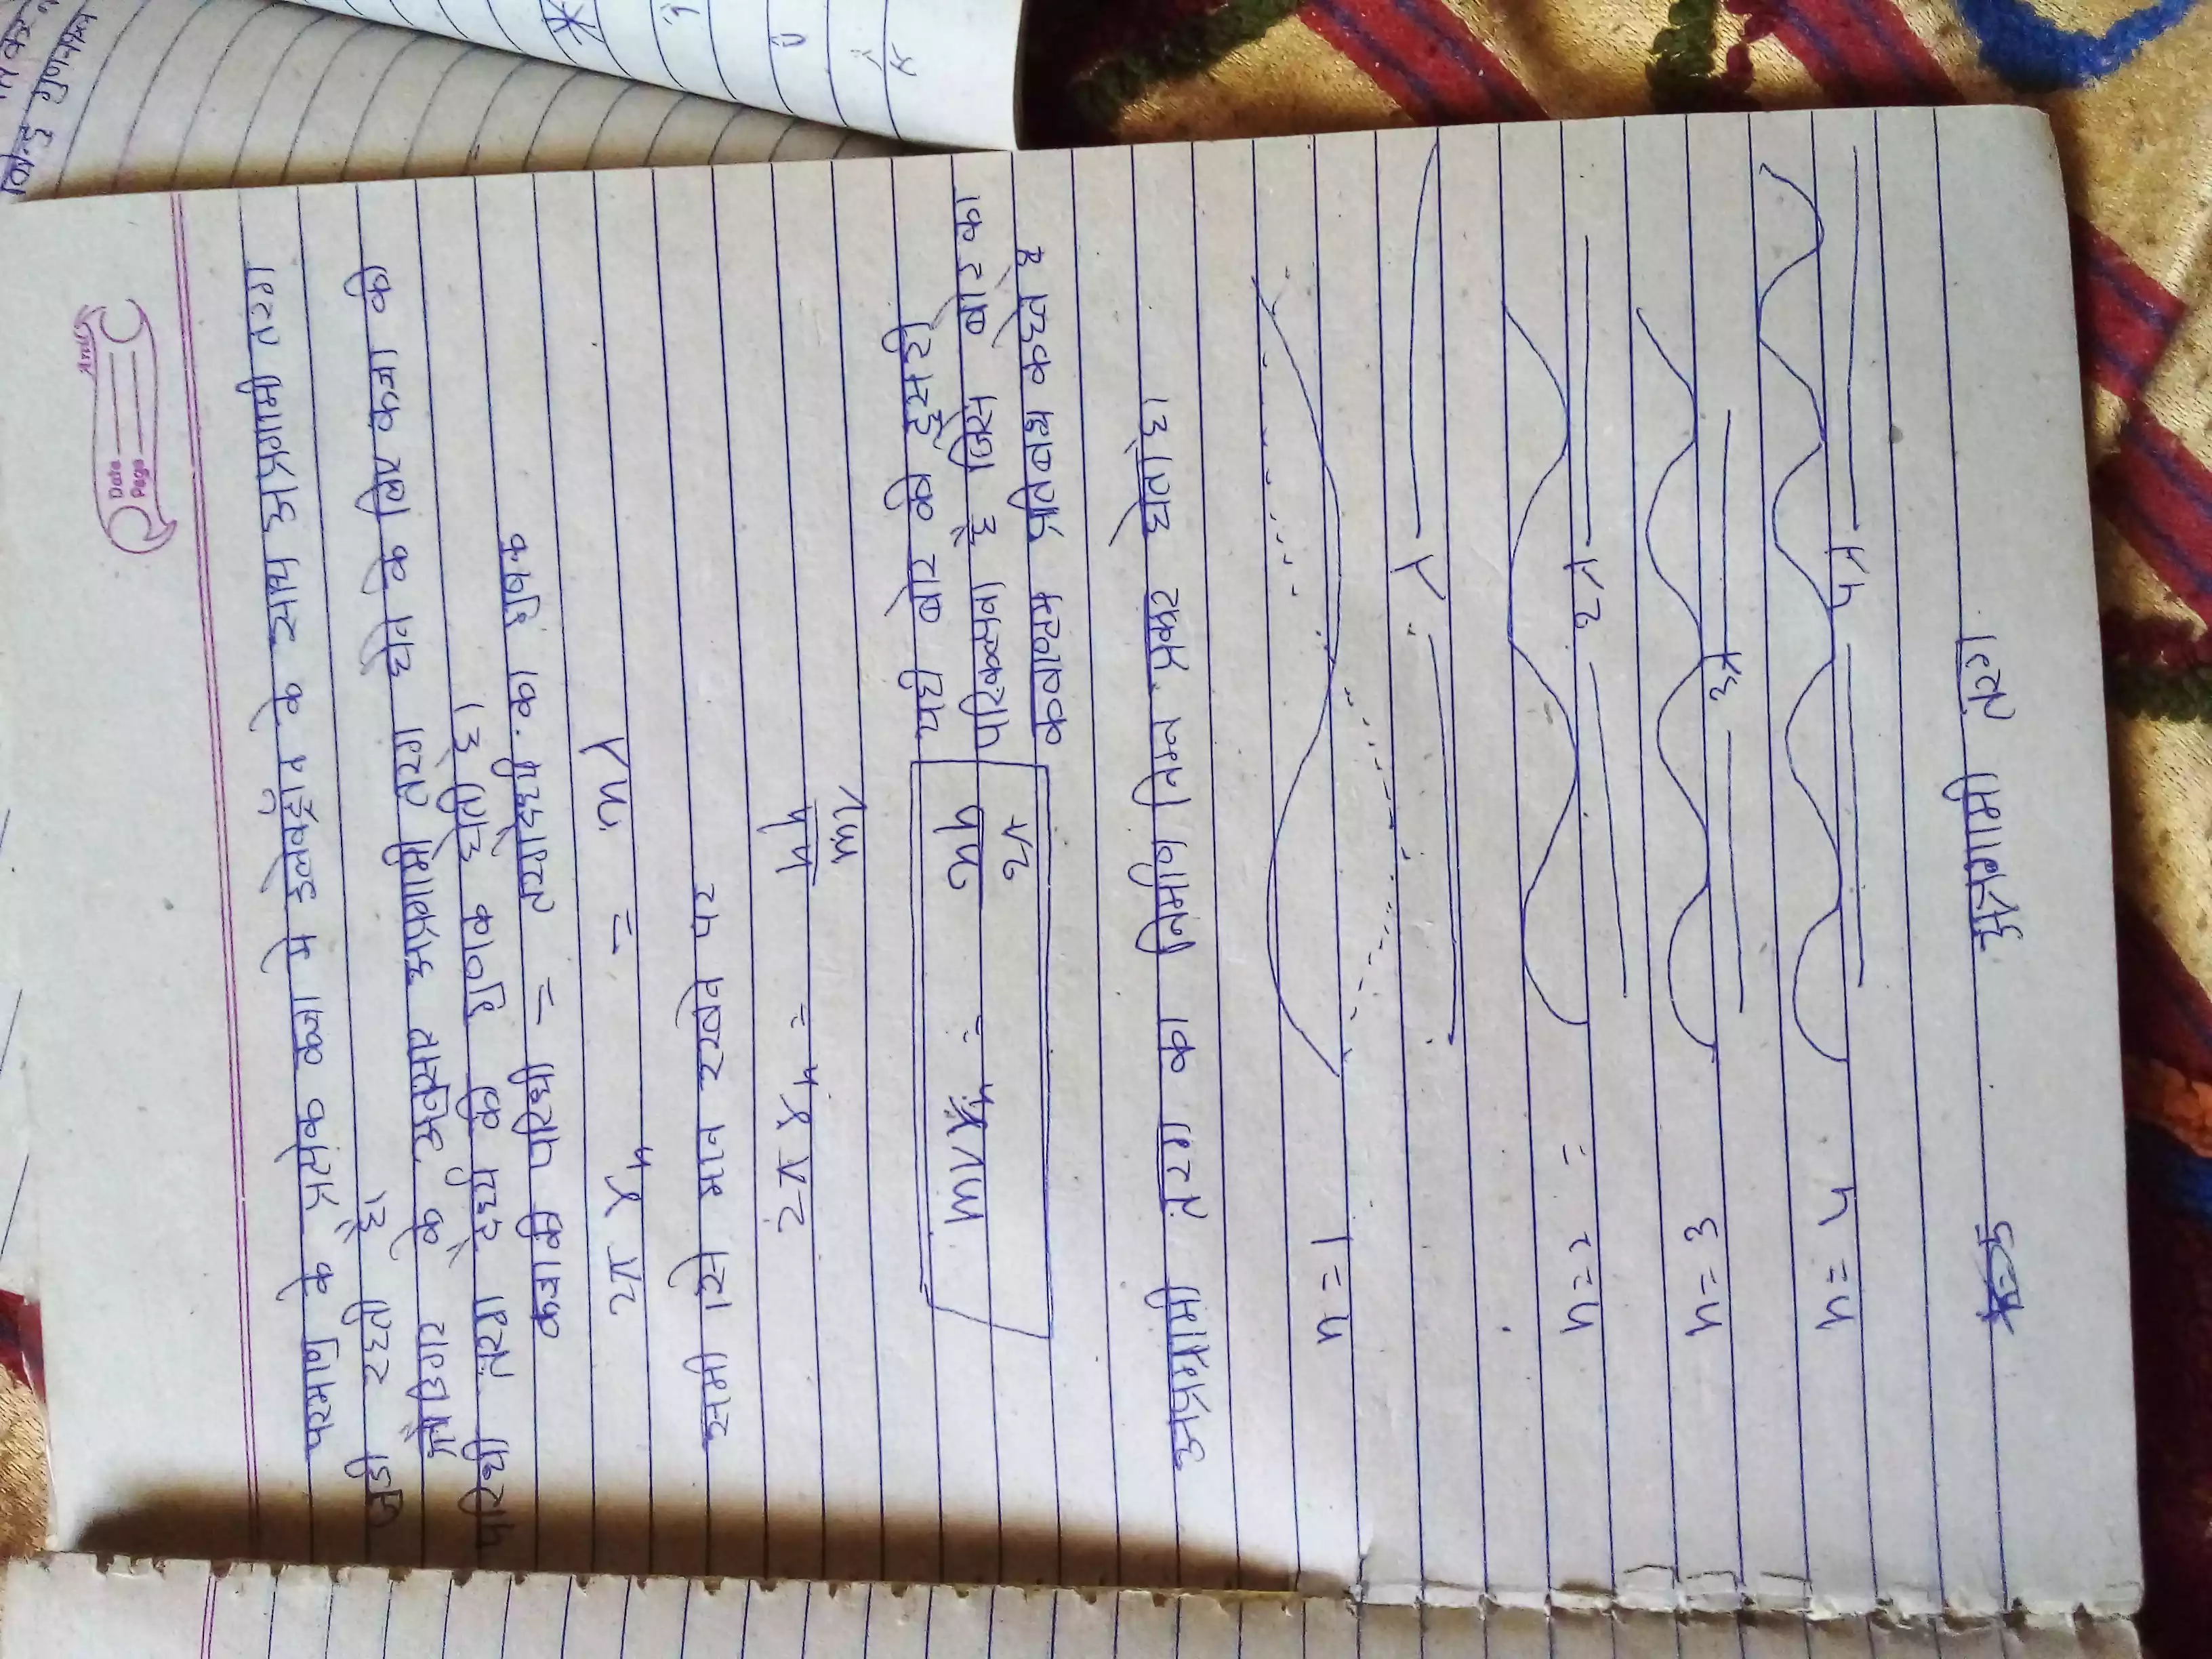 Date
Page
परमाणु के प्रत्येक कक्षा मे इलेक्ट्रॉन के साथ अप्रगामी तरंग
जुडी रहती है।
के अनुसार अप्रगामी तरंग होने के लिए कक्षा की
परिधी तरंग दैर्ध्य की गुणक होती है।
कक्षा की परिधी = तरंगदैर्ध्य का गुणक
2π rₙ = nλ
समी से मान रखने पर
2π rₙ = nh
mv
mvrₙ = nh
2π
यही बोर की दूसरी
परिकल्पना है जिसे बोर का
क्वाण्टम प्रतिबन्ध कहते है
अप्रगामी तरंग का निर्माण निम्न प्रकार होता है।
n = 1
λ
n = 2 =
2λ
n = 3
3λ
n = 4
4λ
अप्रगामी तरंग